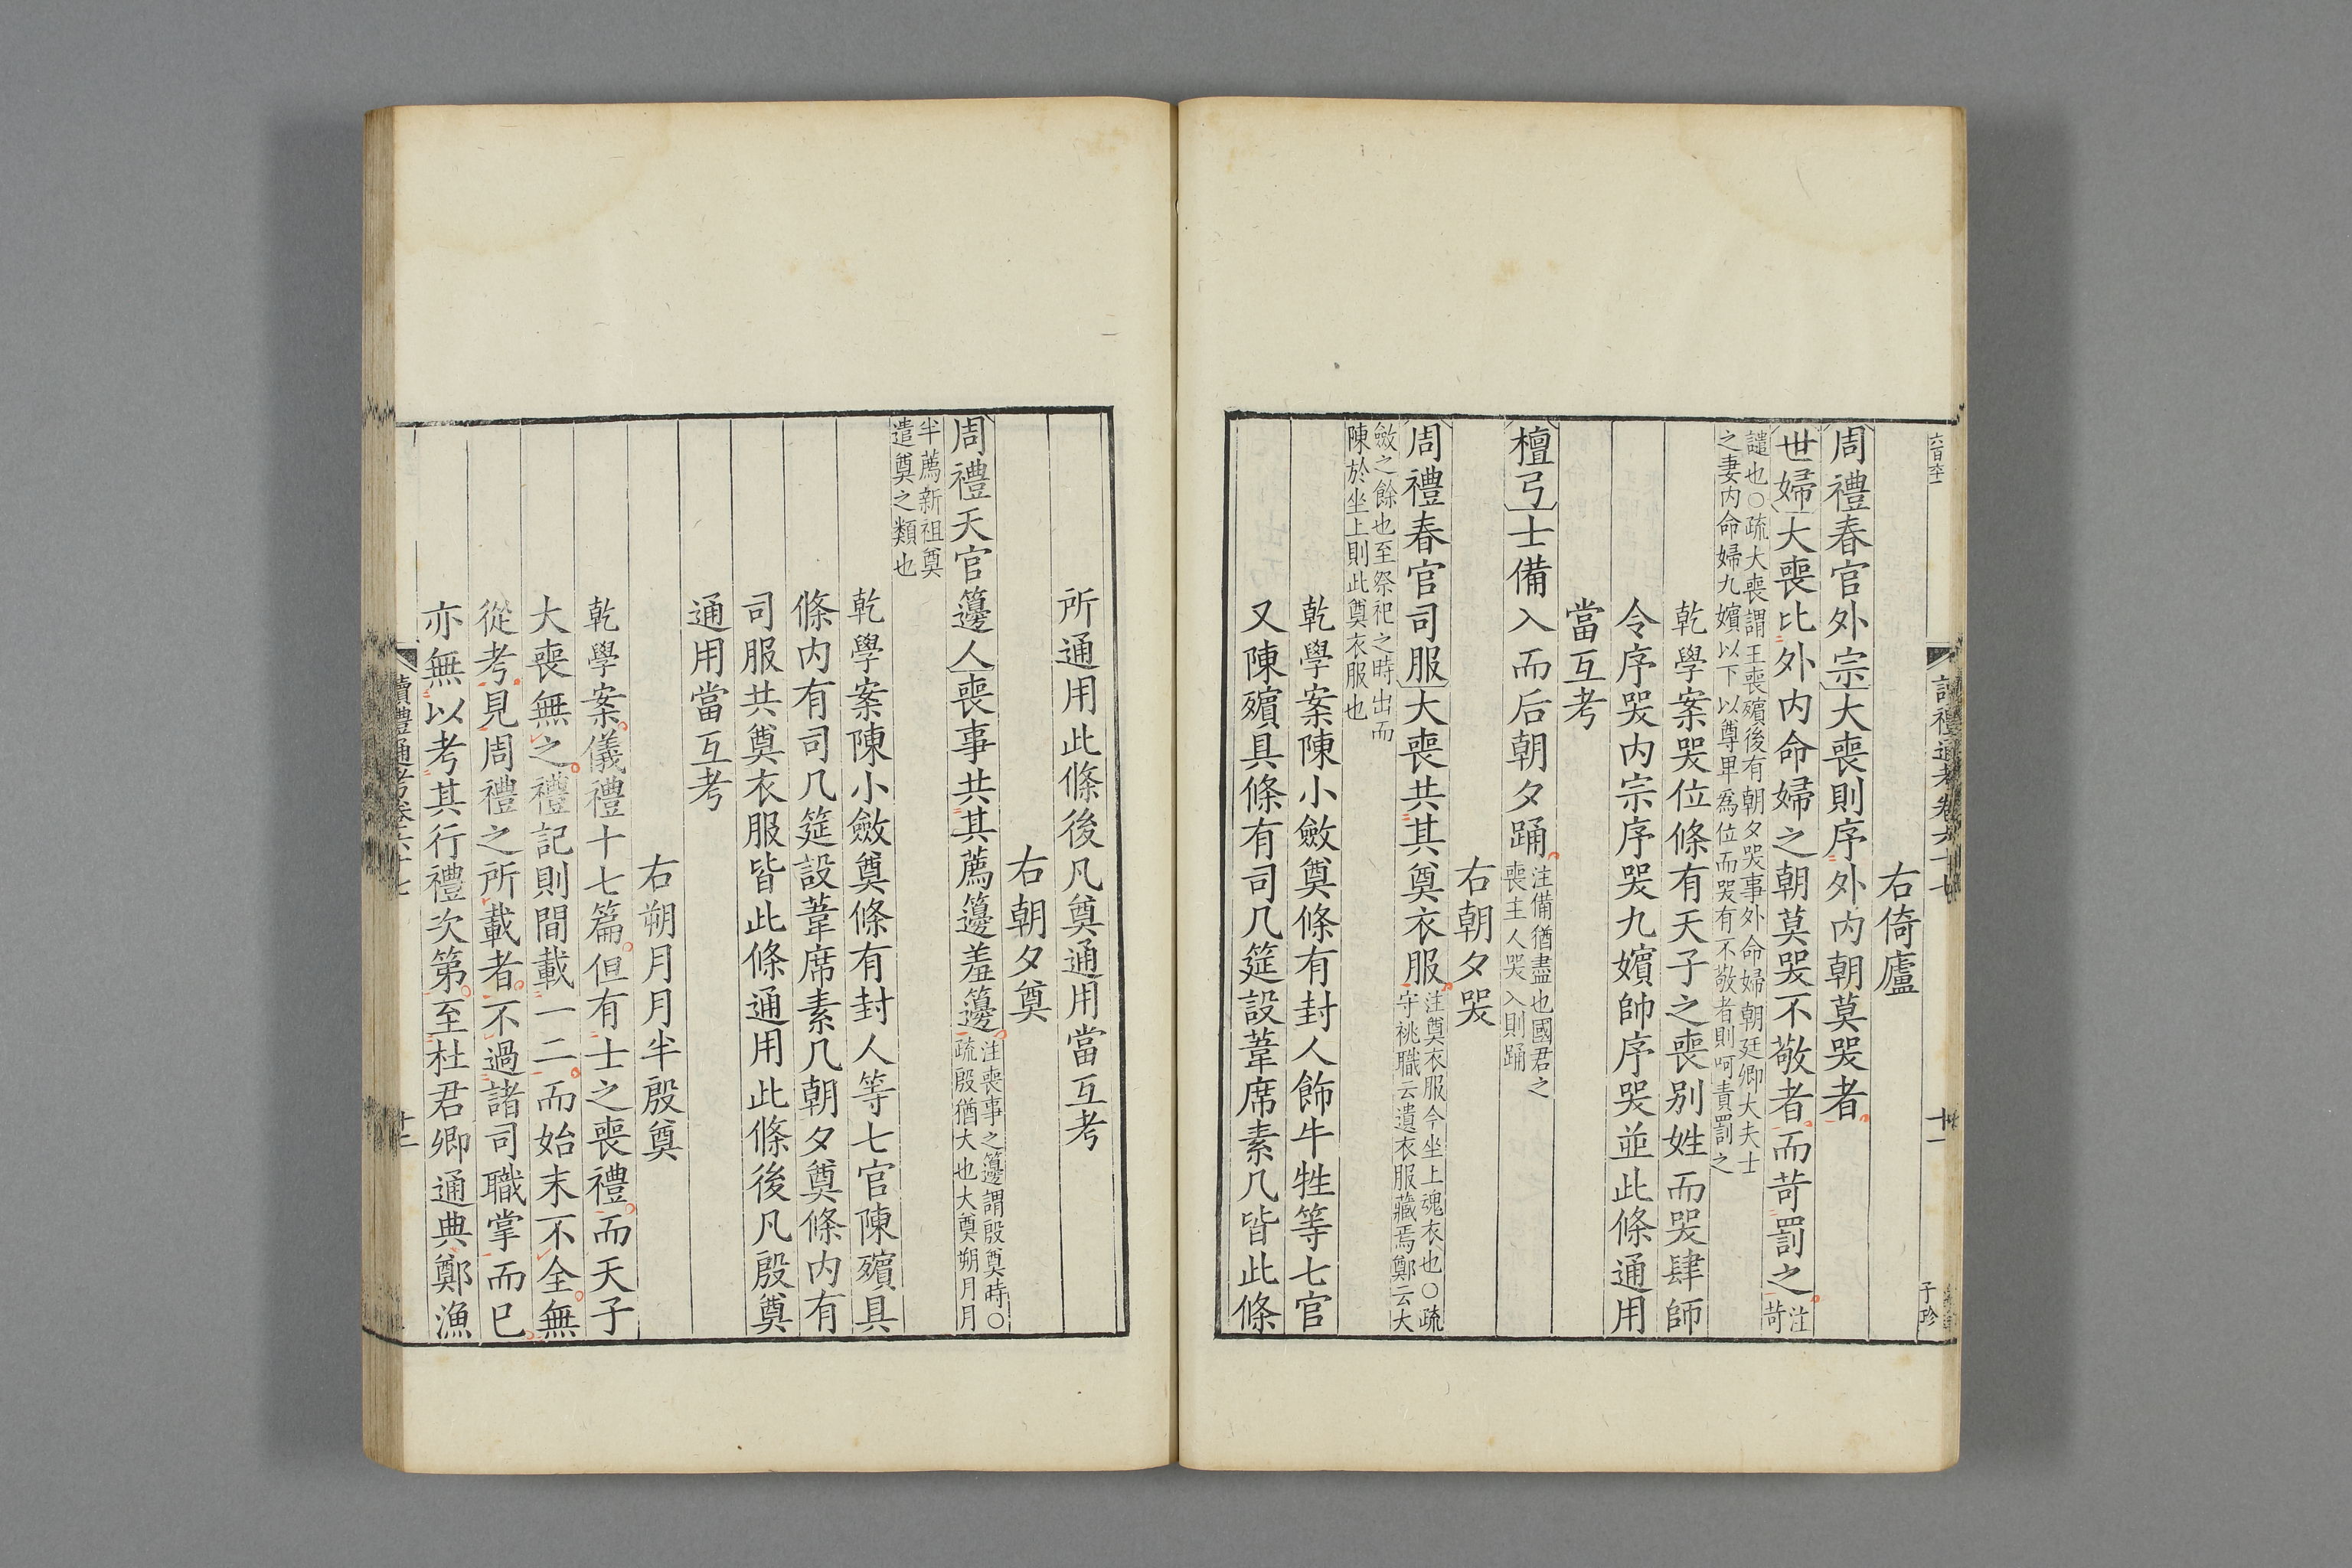 右倚廬
周禮春官外宗大喪則序外内朝莫哭者
世婦大喪比外内命婦之朝莫哭不敬者而苛罰之注苛
譴也○疏大喪謂王喪殯後有朝夕哭事外命婦朝廷卿大夫士
之妻内命婦九嬪以下以尊卑爲位而哭有不敬者則呵責罰之
乾學案哭位條有天子之喪别姓而哭肆師
令序哭内宗序哭九嬪帥序哭並此條通用
當互考
檀弓士備入而后朝夕踊
注備猶盡也國君之
喪主人哭入則踊
右朝夕哭
周禮春官司服大喪共其奠衣服
注奠衣服今坐上魂衣也○疏
守祧職云遺衣服藏焉鄭云大
斂之餘也至祭祀之時出而
陳於坐上則此奠衣服也
乾學案陳小斂奠條有封人飾牛牲等七官
又陳殯具條有司几筵設葦席素几皆此條
所通用此條後凡奠通用當互考
右朝夕奠
周禮天官籩人喪事共其薦籩羞籩
注喪事之籩謂殷奠時○
疏殷猶大也大奠朔月月
半薦新祖奠
遣奠之類也
乾學案陳小斂奠條有封人等七官陳殯具
條内有司几筵設葦席素几朝夕奠條内有
司服共奠衣服皆此條通用此條後凡殷奠
通用當互考
右朔月月半殷奠
乾學案儀禮十七篇但有士之喪禮而天子
大喪無之禮記則間載一二而始末不全無
從考見周禮之所載者不過諸司職掌而已
亦無以考其行禮次第至杜君卿通典鄭漁